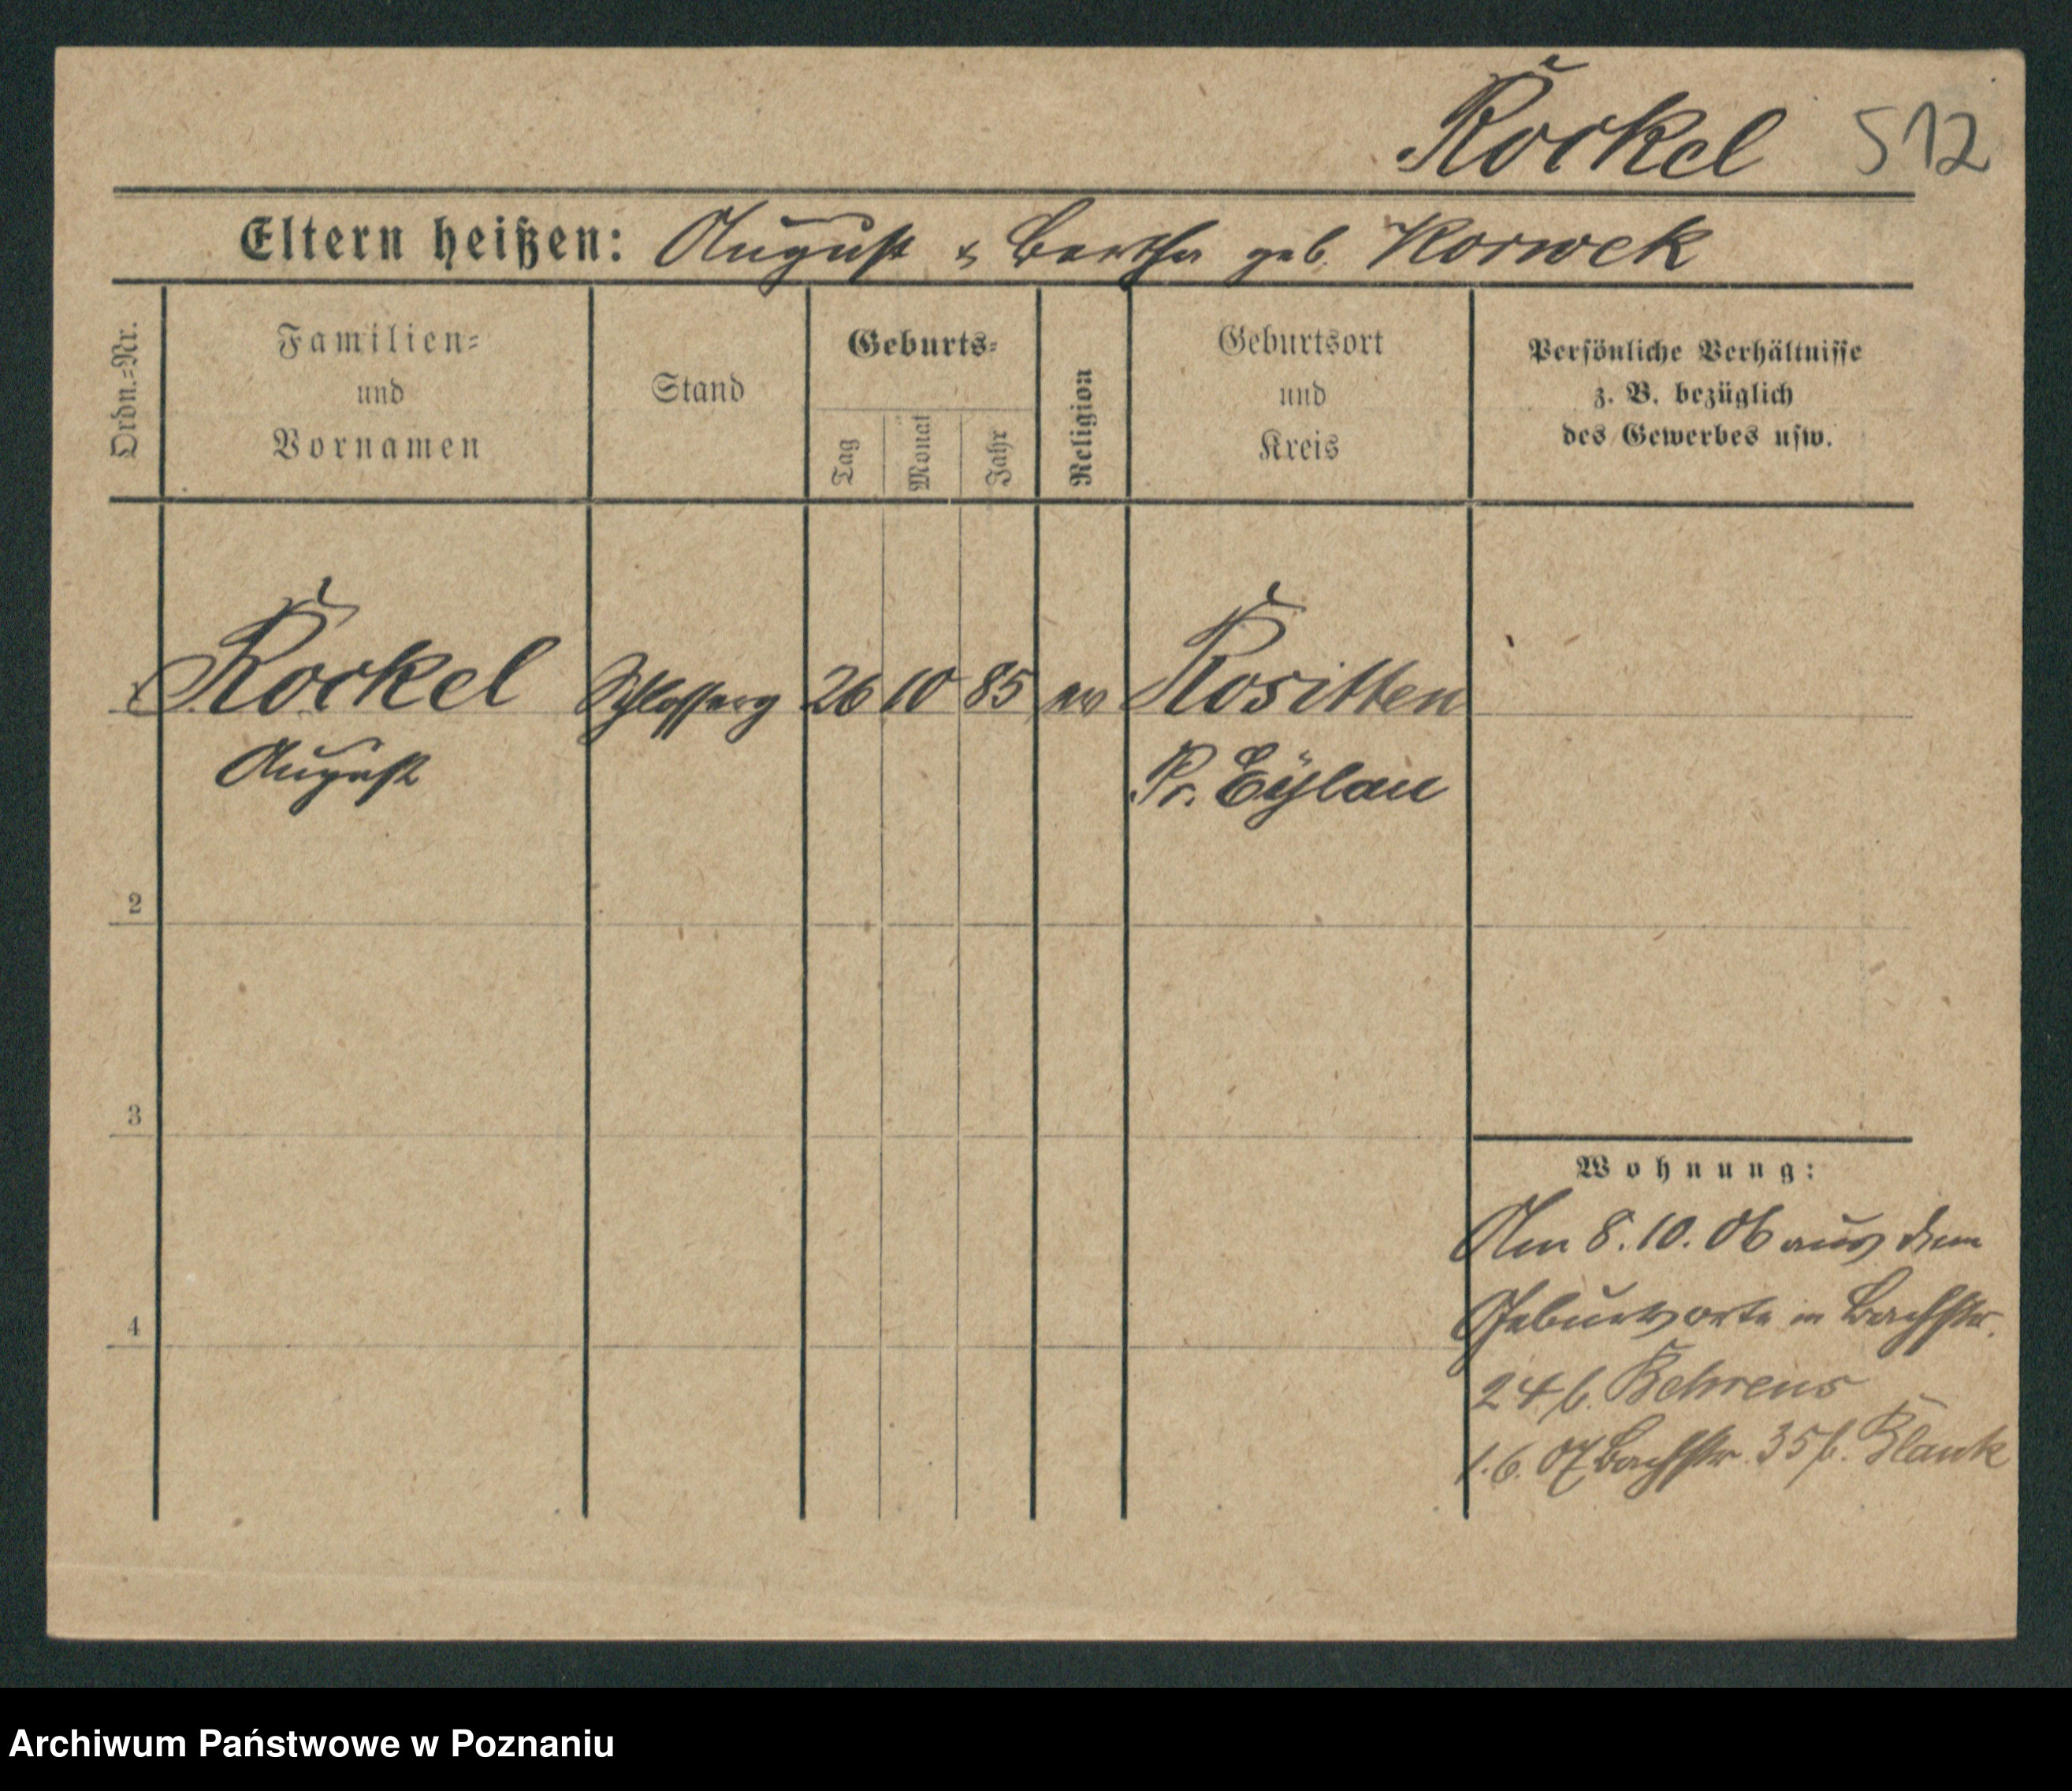 Rockel 512
Eltern heißen: August & Bertha geb. Korwek
Ordn.=Nr.
Familien=
und
Vornamen
Stand
Geburts=
Tag
Monat
Jahr
Religion
Geburtsort
und
Kreis
Persönliche Verhältnisse
z. B. bezüglich
des Gewerbes usw.
Rockel 26 10 85 ev Rositten
August Pr. Eylau
2
3
4
Wohnung:
Am 8. 10. 06 aus dem
Geburtsorte in Bachstr.
24 b. Behrens
1. 6. 07 Bachstr. 35 b. Blank
Archiwum Państwowe w Poznaniu